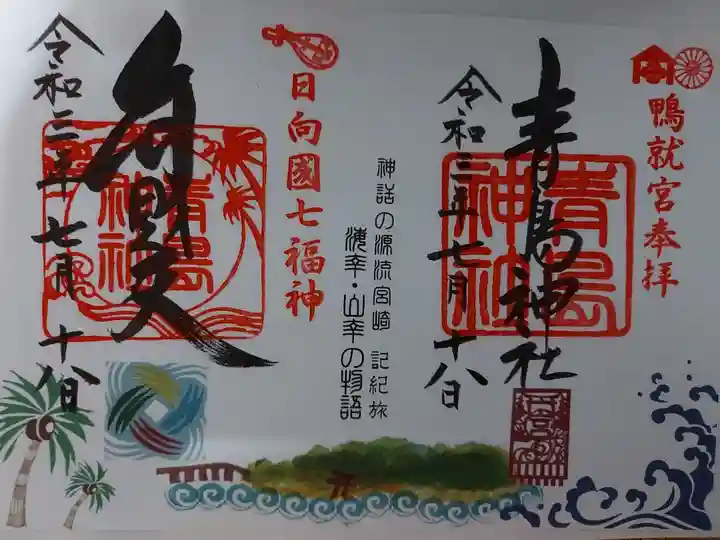 鴨就宮奉拝
青島神社
令和三年七月十八日
青島
神社
神話の源流宮崎 記紀旅
海幸・山幸の物語
日向國七福神
弁財天
青島
神社
令和三年七月十八日